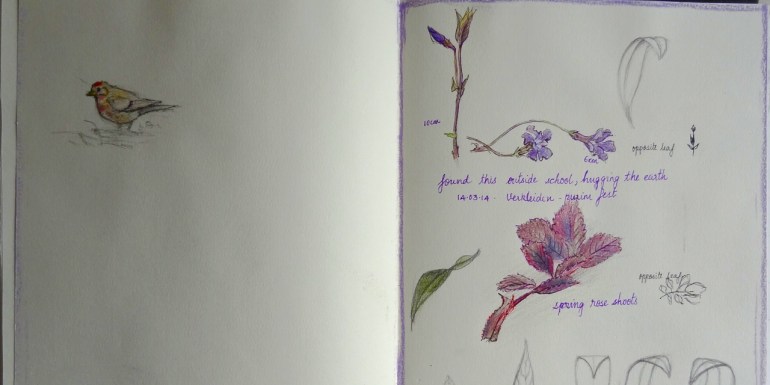 10cm
6cm
opposite leaf
found this outside school, hugging the earth
14.03.14 - Verkleiden - purim fest
opposite leaf
spring rose shoots